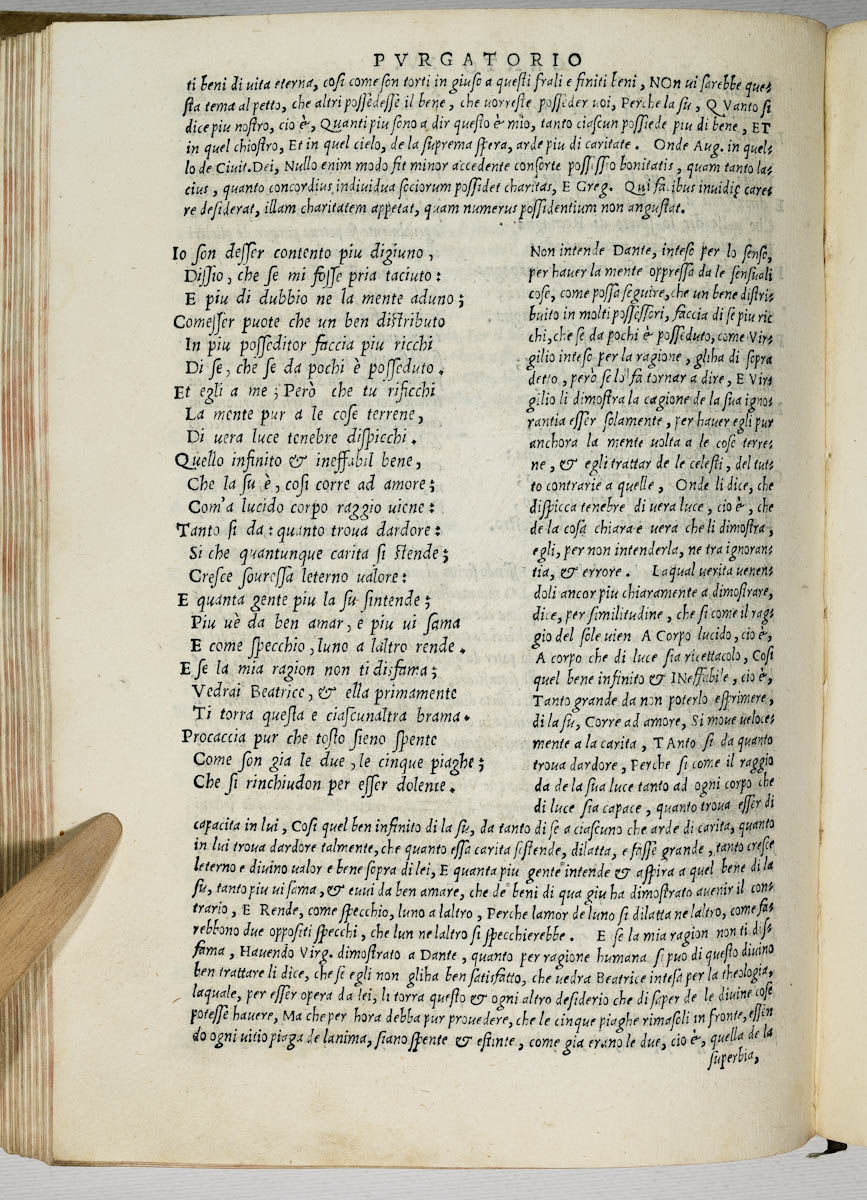 PVRGATORIO
ti beni di uita eterna, cosi come son torti in giuso a questi frali e finiti beni, NOn ui sarebbe que-
sta tema al petto, che altri possedesse il bene, che uorreste posseder uoi, Perche la su, QVanto si
dice piu nostro, cio è, Quanti piu sono a dir questo è mio, tanto ciascun possiede piu di bene, ET
in quel chiostro, Et in quel cielo, de la suprema spera, arde piu di caritate. Onde Aug. in quel-
lo de Ciuit.Dei, Nullo enim modo fit minor accedente consorte possessio bonitatis, quam tanto la-
cius, quanto concordius indiuidua sociorum possidet charitas, E Greg. Qui facibus inuidię care-
re desiderat, illam charitatem appetat, quam numerus possidentium non angustat.
Io son desser contento piu digiuno,
Dissio, che se mi fosse pria taciuto:
E piu di dubbio ne la mente aduno;
Comesser puote che un ben distributo
In piu posseditor faccia piu ricchi
Di se, che se da pochi è posseduto.
Et egli a me; Però che tu rificchi
La mente pur a le cose terrene,
Di uera luce tenebre dispicchi.
Quello infinito & ineffabil bene,
Che la su è, cosi corre ad amore;
Com'a lucido corpo raggio uiene:
Tanto si da: quanto troua dardore:
Si che quantunque carita si stende;
Cresce souressa leterno ualore:
E quanta gente piu la su sintende;
Piu uè da ben amar, e piu ui sama
E come specchio, luno a laltro rende.
E se la mia ragion non ti disfama;
Vedrai Beatrice, & ella primamente
Ti torra questa e ciascunaltra brama.
Procaccia pur che tosto sieno spente
Come son gia le due, le cinque piaghe;
Che si rinchiudon per esser dolente.
Non intende Dante, intese per lo senso,
per hauer la mente oppressa da le sensuali
cose, come possa seguire, che un bene distri-
buito in molti possessori, faccia di se piu ric
chi, che se da pochi è posseduto, come Vir-
gilio intese per la ragione, gliha di sopra
detto, però se lo fa tornar a dire, E Vir-
gilio li dimostra la cagione de la sua igno-
rantia esser solamente, per hauer egli pur
anchora la mente uolta a le cose terre-
ne, & egli trattar de le celesti, del tut-
to contrarie a quelle, Onde li dice, che
dispicca tenebre di uera luce, cio è, che
de la cosa chiara e uera che li dimostra,
egli, per non intenderla, ne tra ignoran-
tia, & errore. Laqual uerita uenen-
doli ancor piu chiaramente a dimostrare,
dice, per similitudine, che si come il rag-
gio del sole uien A Corpo lucido, cio è,
A corpo che di luce sia ricettacolo, Cosi
quel bene infinito & INeffabile, cio è,
Tanto grande da non poterlo esprimere,
di la su, Corre ad amore, Si moue ueloce-
mente a la carita, TAnto si da quanto
troua dardore, Perche si come il raggio
da de la sua luce tanto ad ogni corpo che
di luce sia capace, quanto troua esser di
capacita in lui, Cosi quel ben infinito di la su, da tanto di se a ciascuno che arde di carita, quanto
in lui troua dardore talmente, che quanto essa carita sestende, dilatta, e fasse grande, tanto cresce
leterno e diuino ualor e bene sopra di lei, E quanta piu gente intende & aspira a quel bene di la
su, tanto piu ui sama, & euui da ben amare, che de beni di qua giu ha dimostrato auenir il con-
trario, E Rende, come specchio, luno a laltro, Perche lamor de luno si dilatta ne laltro, come fa-
rebbono due oppositi specchi, che lun ne laltro si specchierebbe. E se la mia ragion non ti dis-
fama, Hauendo Virg. dimostrato a Dante, quanto per ragione humana si puo di questo diuino
ben trattare li dice, che se egli non gliha ben satisfatto, che uedra Beatrice intesa per la theologia,
laquale, per esser opera da lei, li torra questo & ogni altro desiderio che di saper de le diuine cose
potesse hauere, Ma che per hora debba pur prouedere, che le cinque piaghe rimaseli in fronte, essen
do ogni uitio piaga de lanima, siano spente & estinte, come gia erano le due, cio è, quella de la
superbia,